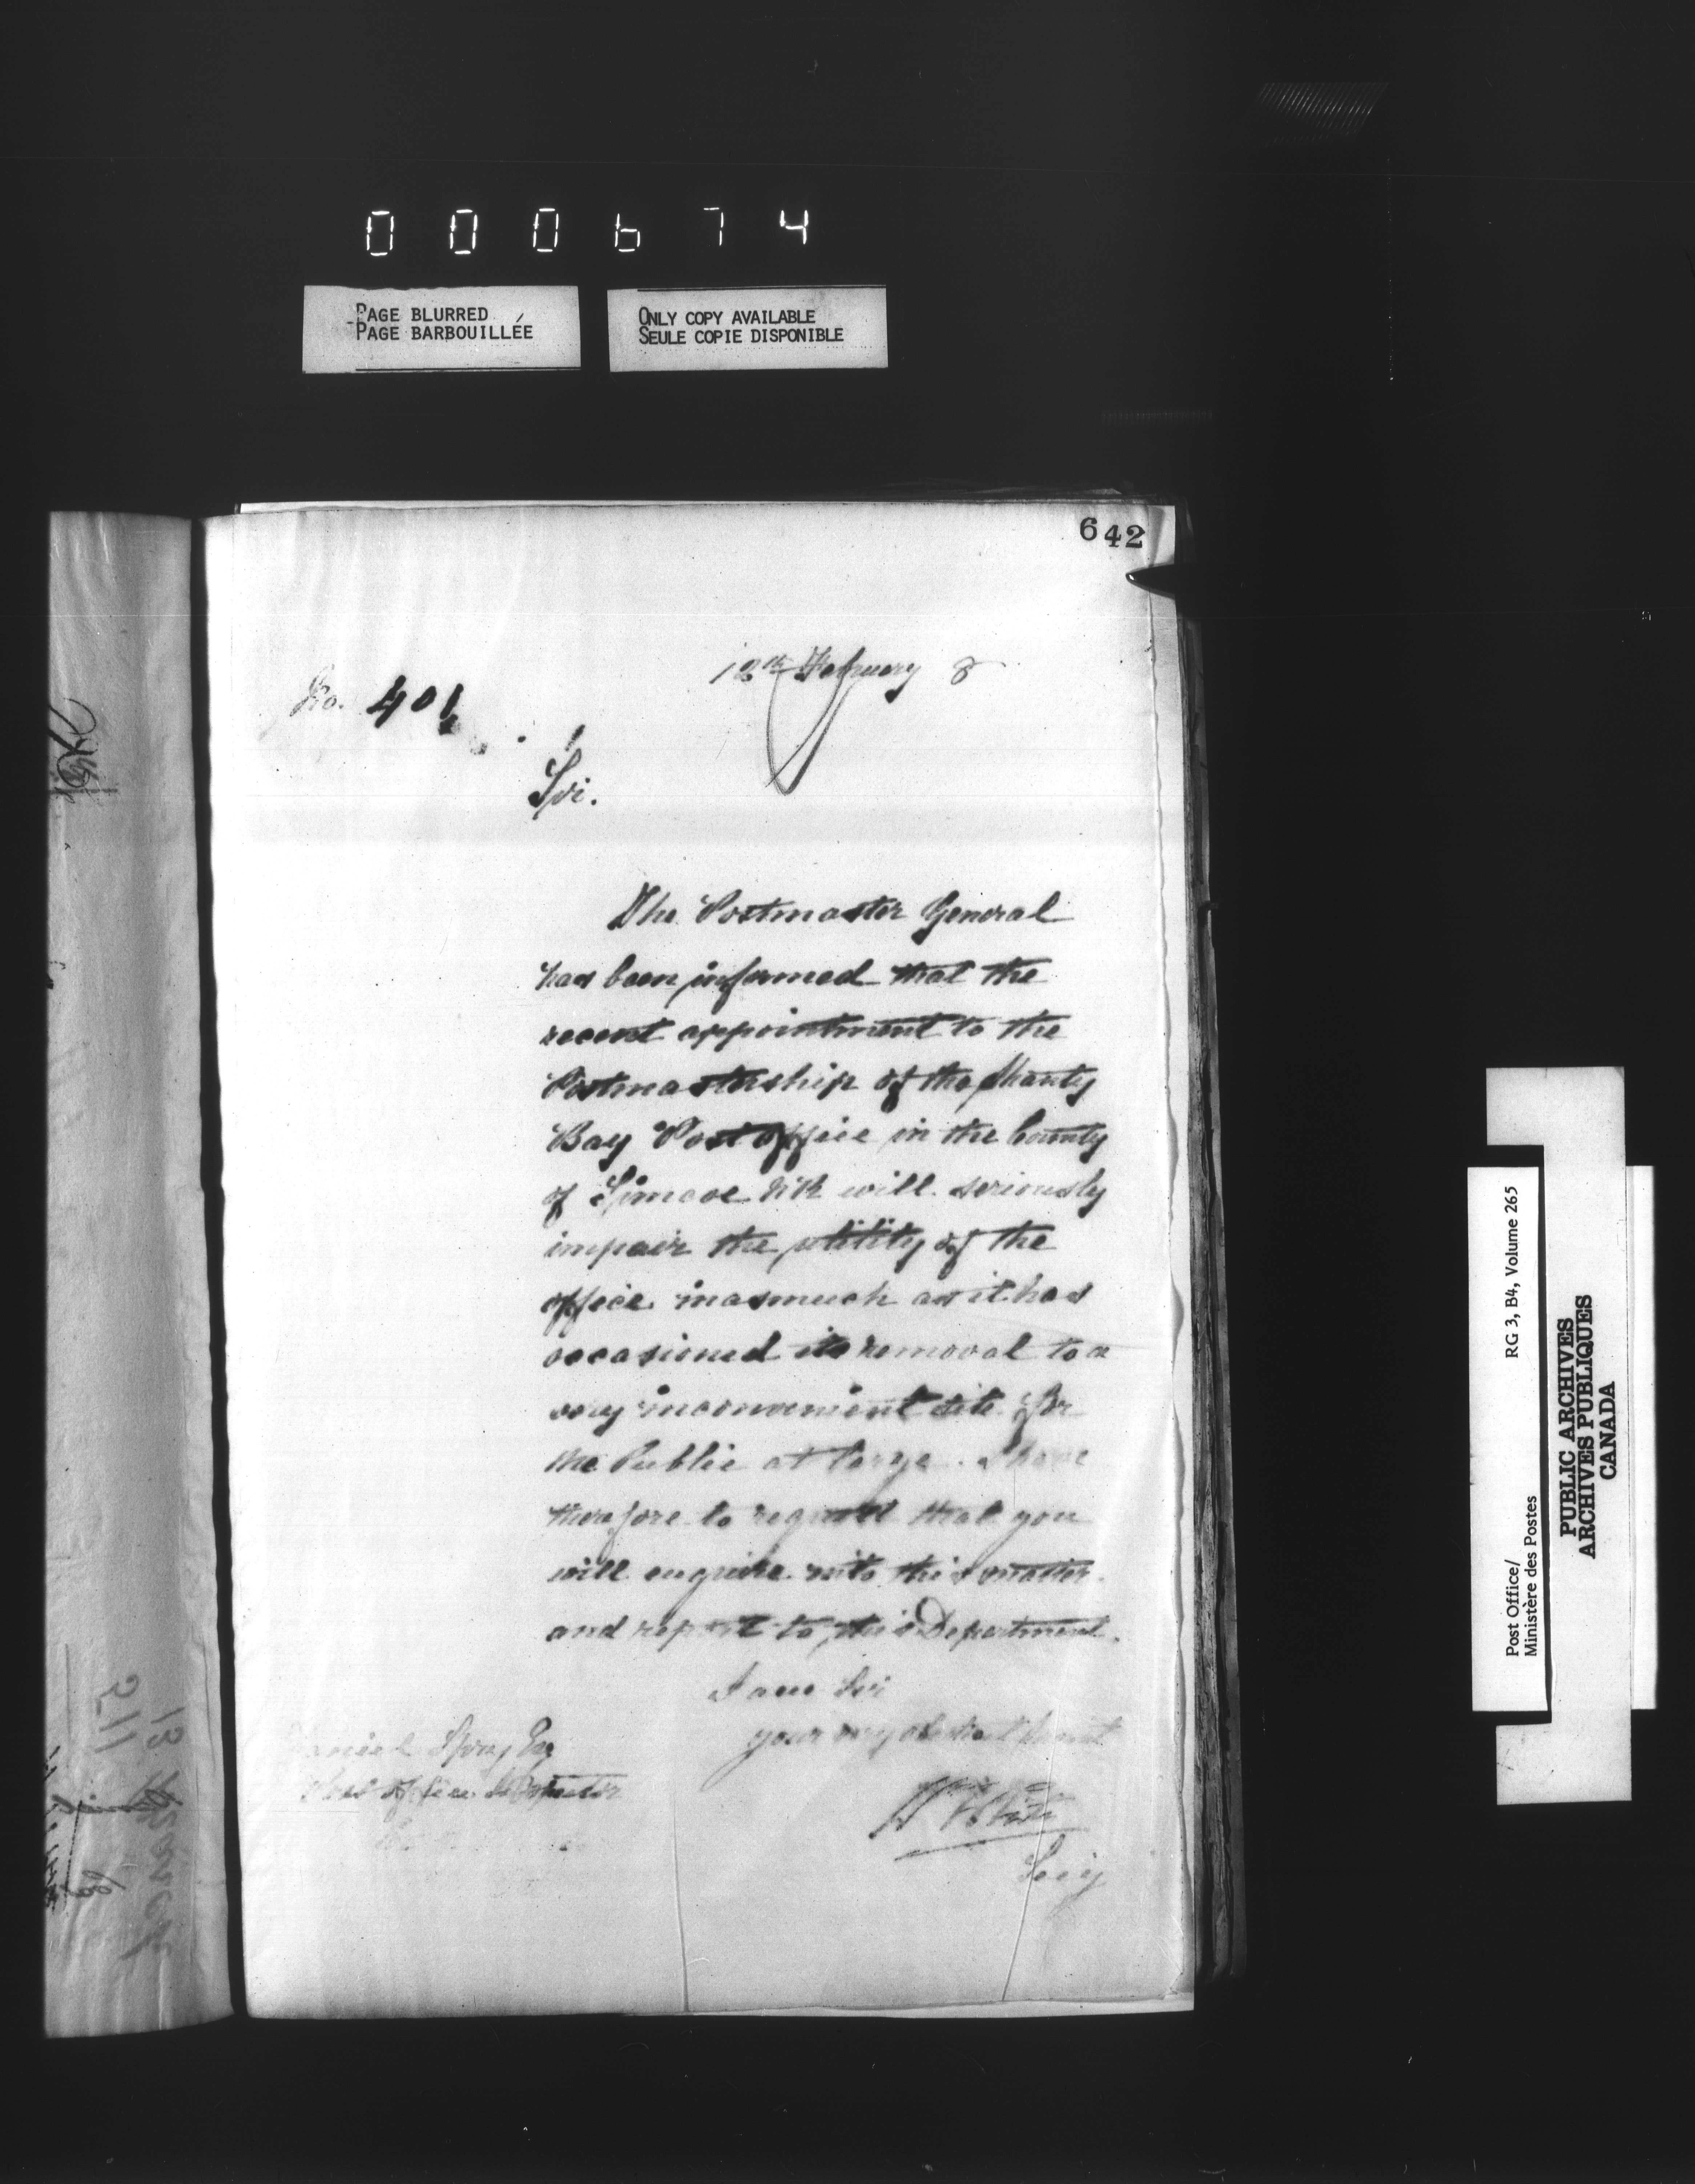 000674
PAGE BLURRED
PAGE BARBOUILLÉE
ONLY COPY AVAILABLE
SEULE COPIE DISPONIBLE
642
12th February 8
No. 401
Sir.
The Postmaster General
has been informed that the
recent appointment to the
Postmastership of the Shanty
Bay Post Office in the County
of Simcoe will seriously
impair the utility of the
office inasmuch as it has
occasioned its removal to a
very inconvenient site for
the Public at large. I have
therefore to request that you
will enquire into this matter
and report to this Department.
I am Sir
your very obedient servant
Daniel Spry Esq
Post Office Inspector
W White
Secy
Post Office/ RG 3, B4, Volume 265
Ministère des Postes
PUBLIC ARCHIVES
ARCHIVES PUBLIQUES
CANADA